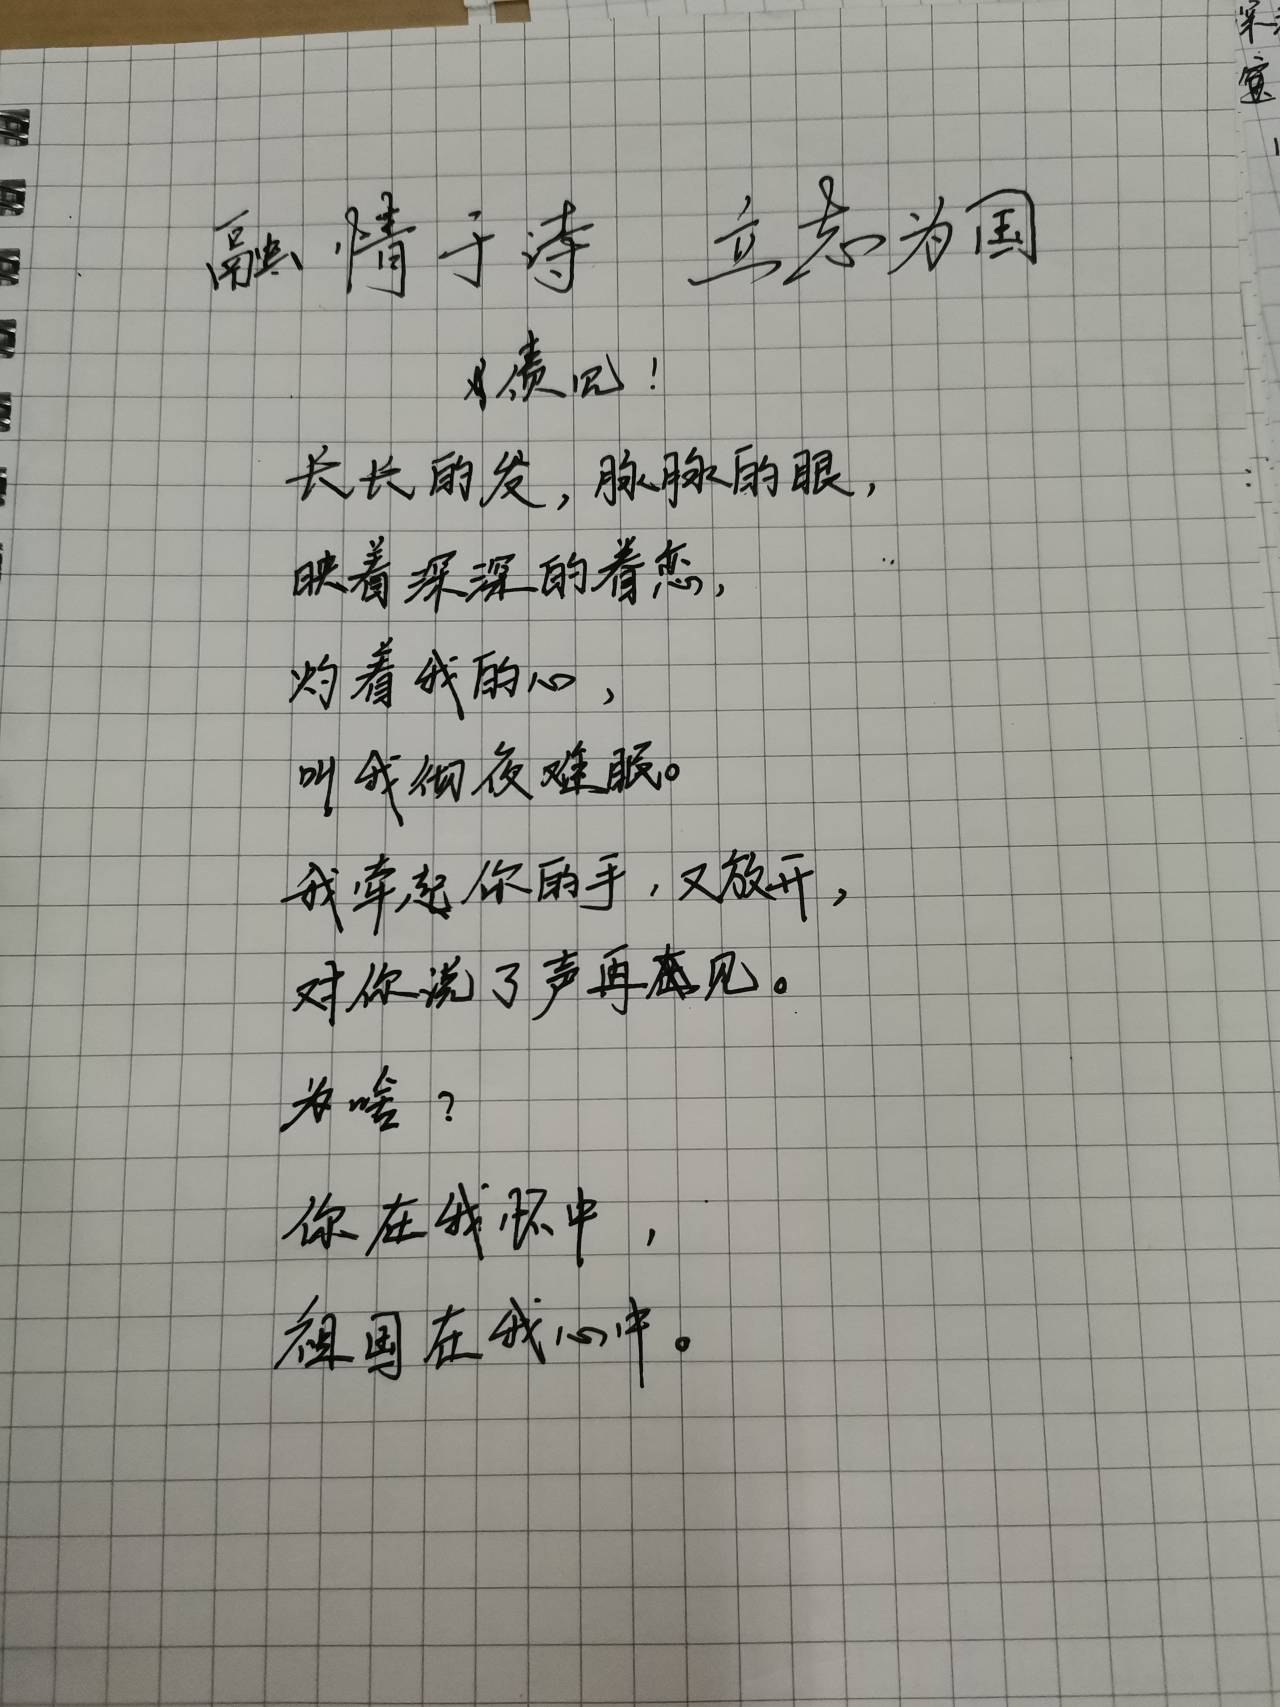 融情于诗 立志为国
长长的发，脉脉的眼，
映着深深的眷恋，
灼着我的心，
叫我彻夜难眠。
我牵起你的手，又放开，
对你说了声再见。
为啥？
你在我怀中，
祖国在我心中。